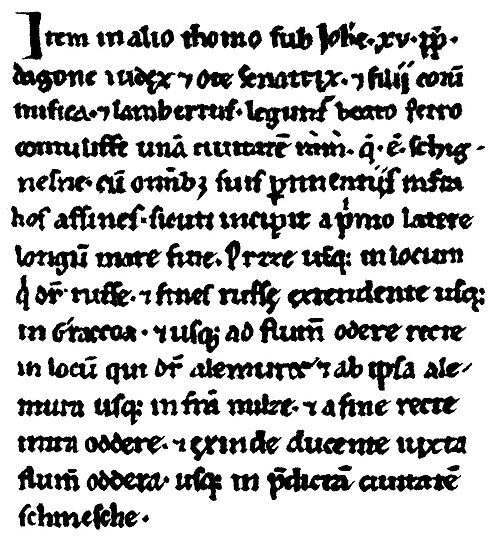 Item in alio thomo sub Ioh̄e. xv. pp̄.
dagone iudex ⁊ ote senatrix. ⁊ filij eorū
misica. ⁊ lambertus. legunt̄ beato petro
contulisse unā ciuitatē in in. q̄. ē. schig-
nesne. cū omīb; suis ꝑtinentijs infra
hos affines. sicuti incipit a pͥmo latere
longū mare fine. Pruzze usq; in locum
q̄ dr̄ russe. ⁊ fines russę extendente usq;
in Graccoa. ⁊ usq; ad flum̄ odere recte
in locū qui dr̄ alemure ⁊ ab ipsa ale-
mura usq; in t̄rā milze. ⁊ a fine recte
intra oddere. ⁊ exinde ducente iuxta
flum̄ oddera. usq; in p̄dictā ciuitatē
schinesche.